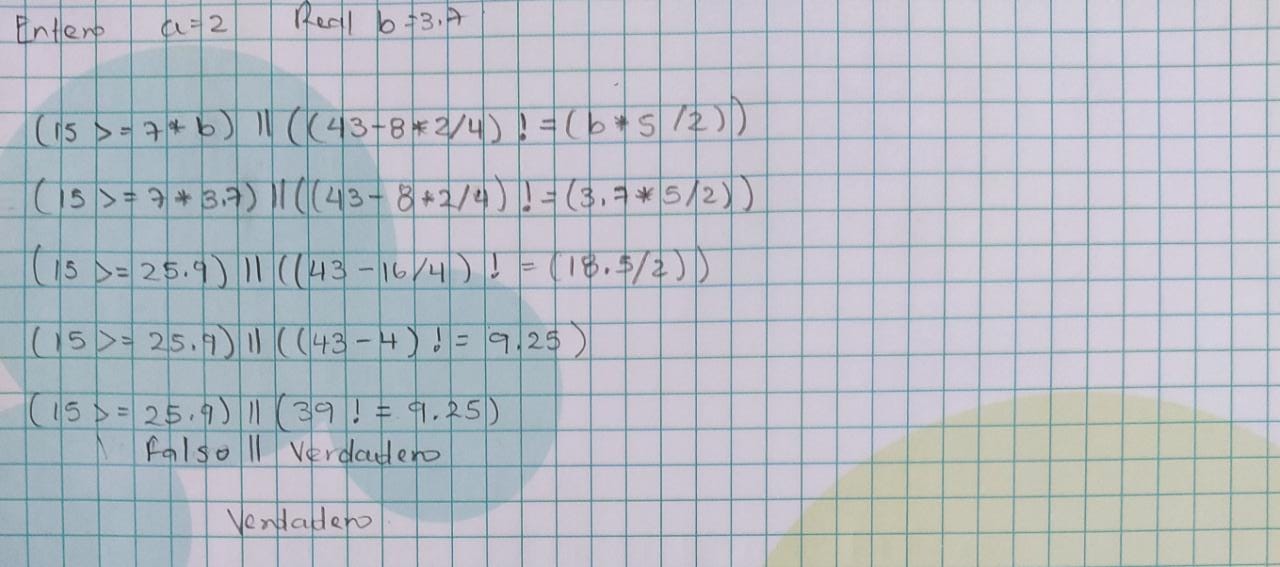 Entero a=2 Real b=3.7
(15 >= 7*b) || ((43-8*2/4) != (b*5/2))
(15 >= 7*3.7) || ((43-8*2/4) != (3.7*5/2))
(15 >= 25.9) || ((43-16/4) != (18.5/2))
(15 >= 25.9) || ((43-4) != 9.25)
(15 >= 25.9) || (39 != 9.25)
Falso || Verdadero
Verdadero